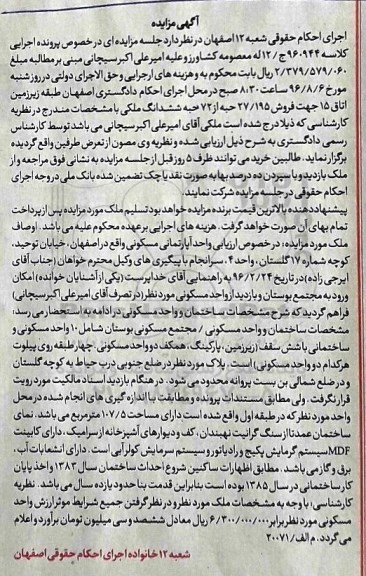 آگهی مزایده
اجرای احکام حقوقی شعبه ۱۲ اصفهان در نظر دارد جلسه مزایده ای در خصوص پرونده اجرایی
کلاسه ۹۶۰۹۴۴ ج/۱۲ له معصومه کشاورز و علیه امیر علی اکبر سیچانی مبنی بر مطالبه مبلغ
۲/۳۷۹/۵۷۹/۰۶۰ ریال بابت محکوم به و هزینه های اجرایی و حق الاجرای دولتی در روز شنبه
مورخ ۹۶/۸/۶ ساعت ۸:۳۰ صبح در محل اجرای احکام دادگستری اصفهان طبقه زیرزمین
اتاق ۱۵ جهت فروش ۲۷/۱۹۵ حبه از ۷۲ حبه ششدانگ ملکی با مشخصات مندرج در نظریه
کارشناسی که ذیلا درج شده است ملکی آقای امیر علی اکبر سیچانی می باشد توسط کارشناس
رسمی دادگستری به شرح ذیل ارزیابی شده و نظریه وی مصون از تعرض طرفین واقع گردیده
برگزار نماید. طالبین خرید می توانند ظرف ۵ روز قبل از جلسه مزایده به نشانی فوق مراجعه و از
ملک بازدید و با سپردن ده درصد بها به صورت نقد یا چک تضمین شده بانک ملی در وجه اجرای
احکام حقوقی در جلسه مزایده شرکت نمایند.
پیشنهاد دهنده بالاترین قیمت برنده مزایده خواهد بود تسلیم ملک مورد مزایده پس از پرداخت
تمام بهای آن صورت خواهد گرفت. هزینه های اجرایی بر عهده محکوم علیه می باشد. اوصاف
ملک مورد مزایده: در خصوص ارزیابی واحد آپارتمانی مسکونی واقع در اصفهان، خیابان توحید،
کوچه شماره ۱۷ گلستان، واحد ۴، سرانجام با پیگیری های وکیل محترم خواهان (جناب آقای
ایرجی زاده) در تاریخ ۹۶/۲/۲۴ به راهنمایی آقای خداپرست (یکی از آشنایان خوانده) امکان
ورود به مجتمع بوستان و بازدید از واحد مسکونی مورد نظر (در تصرف آقای امیر علی اکبر سیچانی)
فراهم گردید که شرح مشخصات ساختمان و واحد مسکونی در ادامه به استحضار می رسد:
مشخصات ساختمان و واحد مسکونی / مجتمع مسکونی بوستان شامل ۱۰ واحد مسکونی و
ساختمانی با شش سقف (زیرزمین، پارکینگ، همکف دو واحد مسکونی، چهار طبقه روی پیلوت
هر کدام دو واحد مسکونی) است. پلاک مورد نظر در ضلع جنوبی درب حیاط به کوچه گلستان
و در ضلع شمالی بن بست پروانه محدود می شود. در هنگام بازدید اسناد مالکیت مورد رویت
قرار نگرفت. ولی مطابق مستندات پرونده و مطابقت با اندازه گیری های انجام شده در محل
واحد مورد نظر که در طبقه اول واقع شده است دارای مساحت ۱۰۷/۵ متر مربع می باشد. نمای
ساختمان عمدتا از سنگ گرانیت نهبندان، کف و دیوارهای آشپزخانه از سرامیک، دارای کابینت
MDF سیستم گرمایش پکیج و رادیاتور و سیستم سرمایش کولر آبی است. دارای انشعابات آب،
برق و گاز می باشد. مطابق اظهارات ساکنین شروع احداث ساختمان سال ۱۳۸۳ و اخذ پایان
کار ساختمانی در سال ۱۳۸۵ بوده است بنابراین قدمت بنا حدود یازده سال می باشد. نظریه
کارشناسی: با وجه به مشخصات ملک مورد نظر و در نظر گرفتن جمیع شرایط موثر ارزش واحد
مسکونی مورد نظر برابر ۶/۳۰۰/۰۰۰/۰۰۰ ریال معادل ششصد و سی میلیون تومان برآورد و اعلام
می گردد. م الف/ ۲۰۰۷۱
شعبه ۱۲ خانواده اجرای احکام حقوقی اصفهان